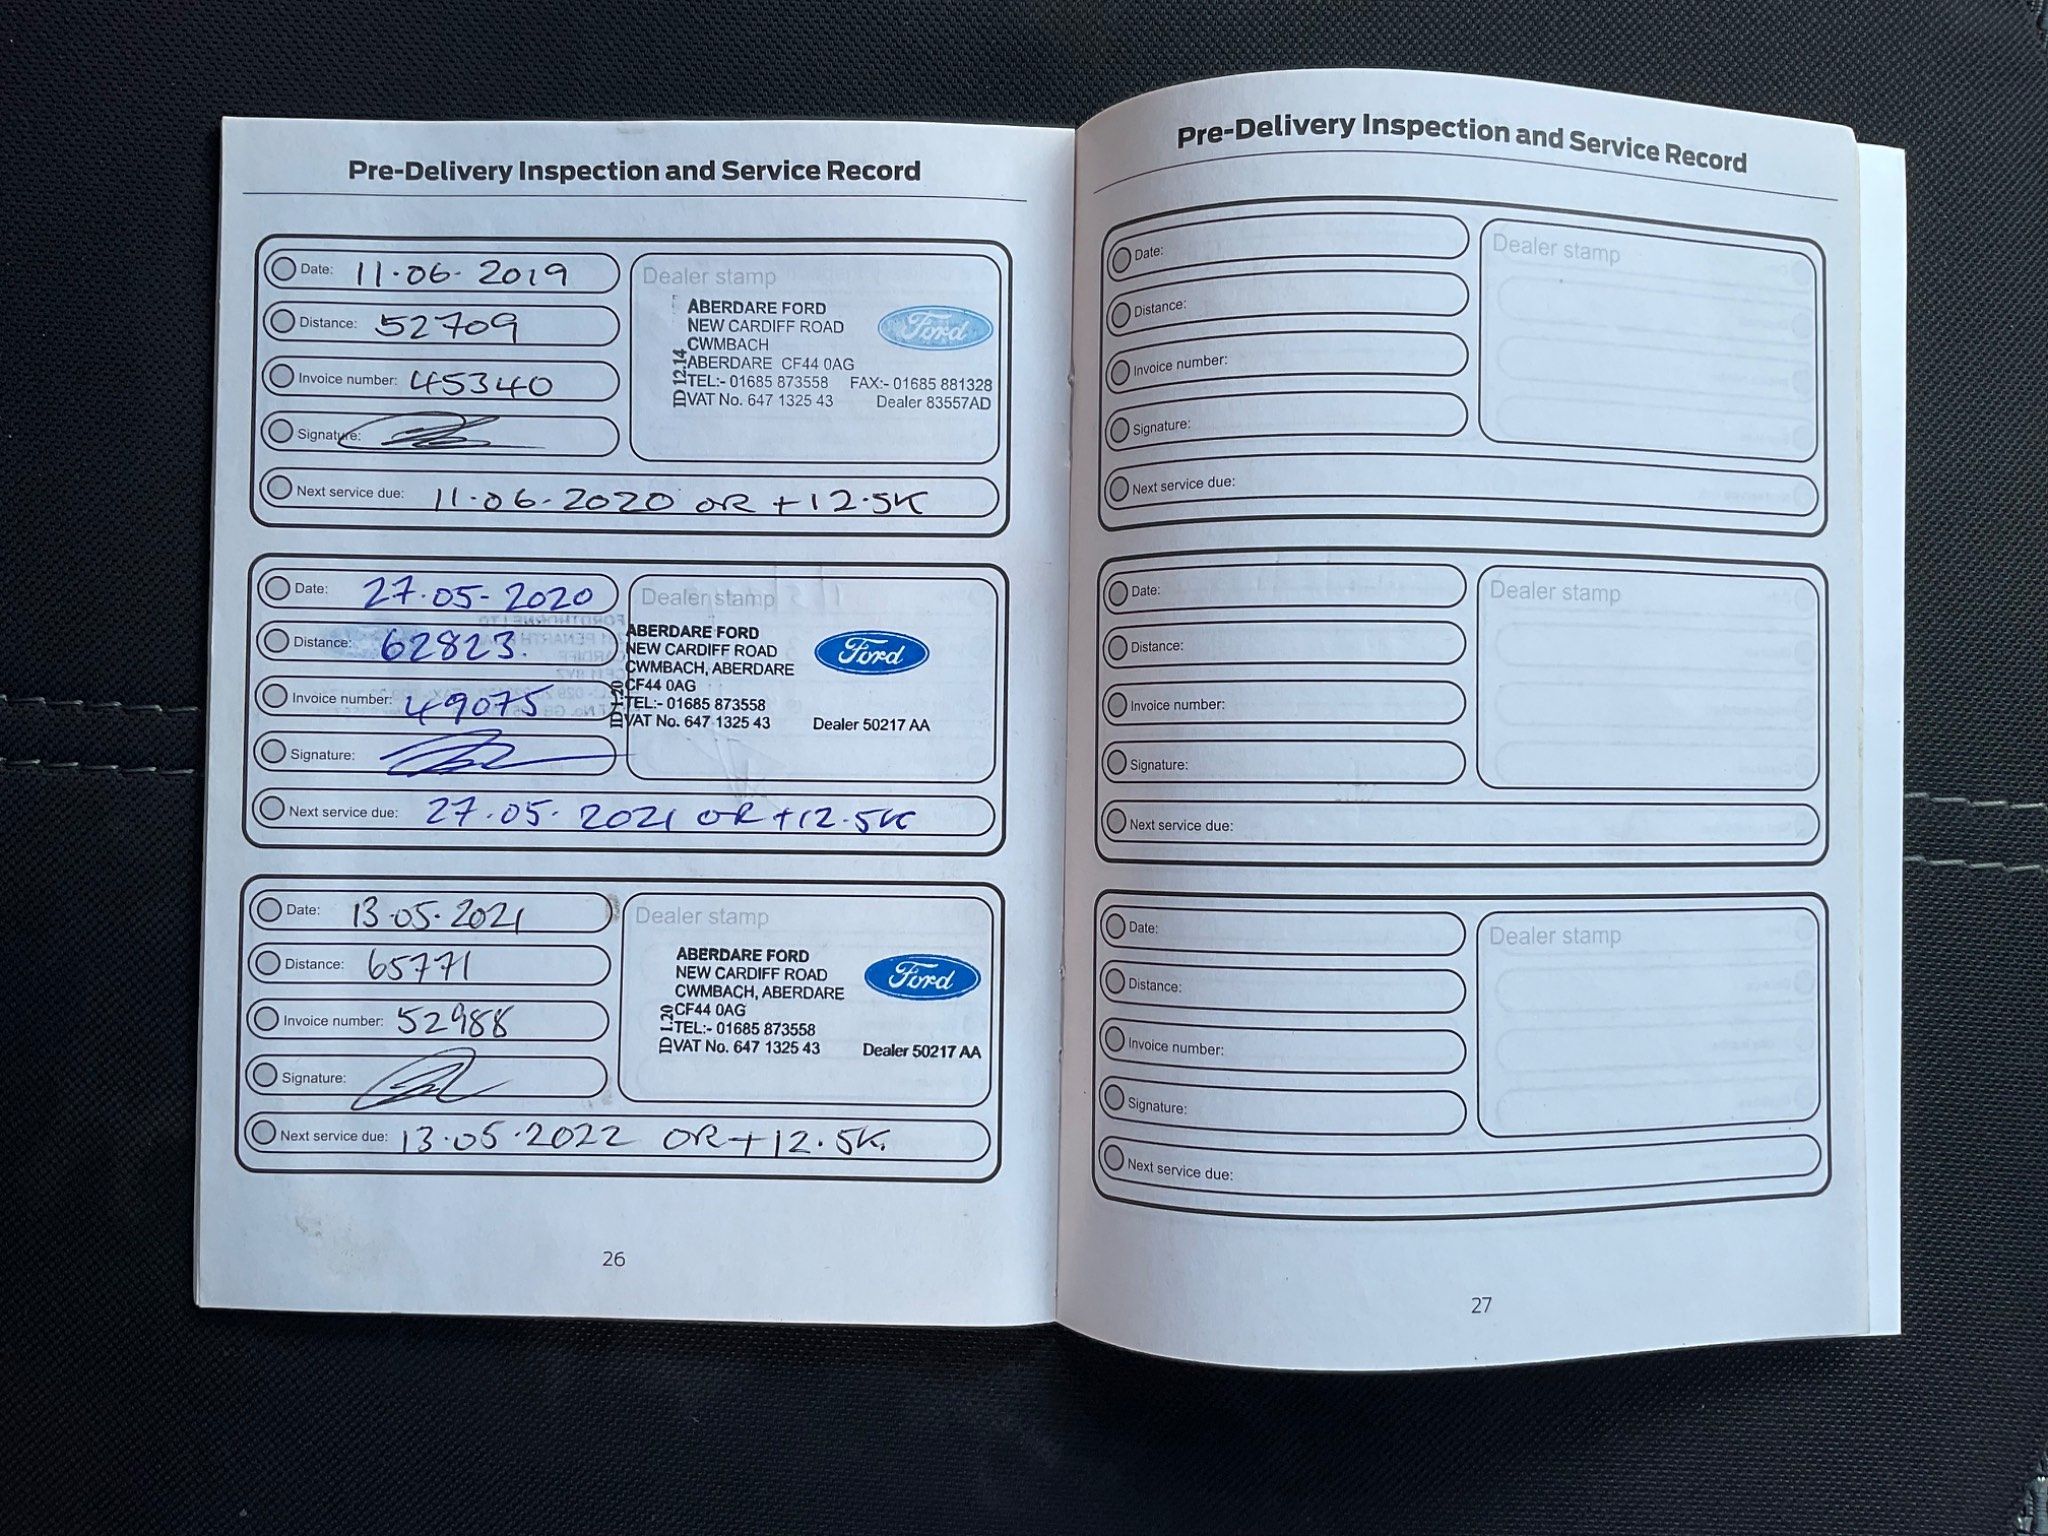 Pre-Delivery Inspection and Service Record
Date: 11.06.2019
Distance: 52709
Invoice number: 45340
Signature:
Next service due: 11.06.2020 OR +12.5K
Dealer stamp
ABERDARE FORD
NEW CARDIFF ROAD
CWMBACH
ABERDARE CF44 0AG
TEL:- 01685 873558 FAX:- 01685 881328
VAT No. 647 1325 43 Dealer 83557AD
ID 12.14
Ford
Date: 27.05-2020
Distance: 62823.
Invoice number: 49075
Signature:
Next service due: 27.05.2021 OR +12.5K
Dealer stamp
ABERDARE FORD
NEW CARDIFF ROAD
CWMBACH, ABERDARE
CF44 0AG
TEL:- 01685 873558
VAT No. 647 1325 43 Dealer 50217 AA
ID 1.20
Ford
Date: 13.05.2021
Distance: 65771
Invoice number: 52988
Signature:
Next service due: 13.05.2022 OR +12.5K.
Dealer stamp
ABERDARE FORD
NEW CARDIFF ROAD
CWMBACH, ABERDARE
CF44 0AG
TEL:- 01685 873558
VAT No. 647 1325 43 Dealer 50217 AA
ID 1.20
Ford
26
Pre-Delivery Inspection and Service Record
Date:
Distance:
Invoice number:
Signature:
Next service due:
Dealer stamp
Date:
Distance:
Invoice number:
Signature:
Next service due:
Dealer stamp
Date:
Distance:
Invoice number:
Signature:
Next service due:
Dealer stamp
27